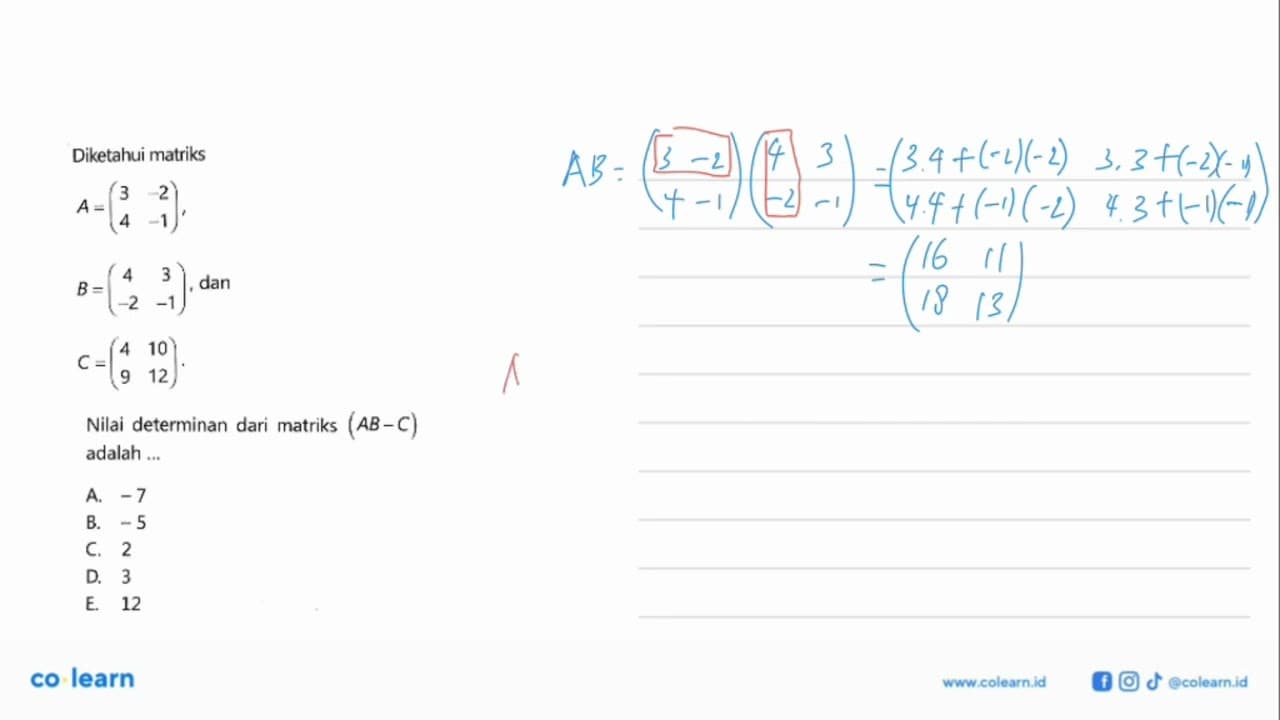 Diketahui matriks
A = (3 -2
4 -1),
B = (4 3
-2 -1), dan
C = (4 10
9 12).
Nilai determinan dari matriks (AB - C)
adalah ...
A. - 7
B. - 5
C. 2
D. 3
E. 12
AB = (3 -2
4 -1) (4 3
-2 -1) = (3.4+(-2)(-2) 3.3+(-2)(-1)
4.4+(-1)(-2) 4.3+(-1)(-1))
= (16 11
18 13)
co learn
www.colearn.id
@colearn.id